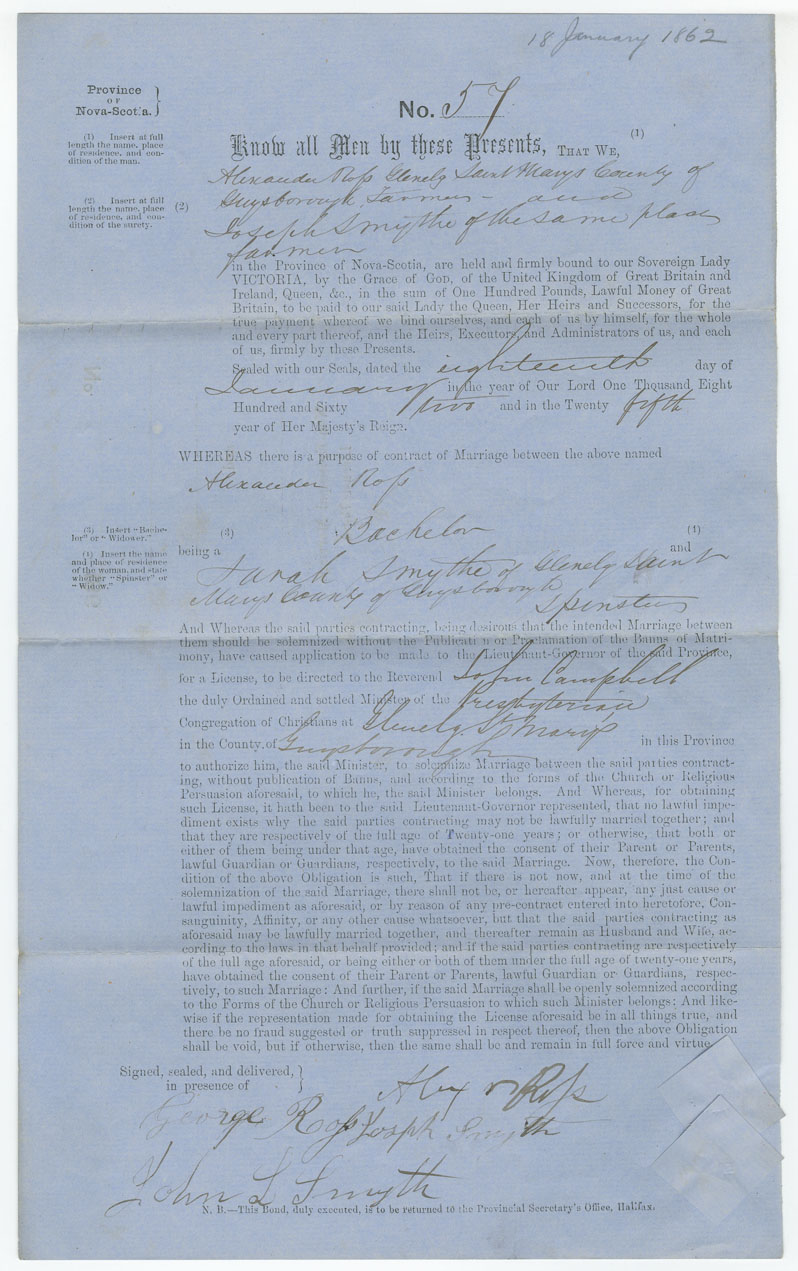 18 January 1862
Province
OF
Nova-Scotia.
No. 57
(1) Insert at full
length the name, place
of residence, and con-
dition of the man.
Know all Men by these Presents, THAT WE, (1)
Alexander Ross Glenelg Saint Marys County of
Guysborough Farmer - and
(2) Insert at full
length the name, place
of residence, and con-
dition of the surety.
(2)
Joseph Smythe of the same place
farmer
in the Province of Nova-Scotia, are held and firmly bound to our Sovereign Lady
VICTORIA, by the Grace of GOD, of the United Kingdom of Great Britain and
Ireland, Queen, &c., in the sum of One Hundred Pounds, Lawful Money of Great
Britain, to be paid to our said Lady the Queen, Her Heirs and Successors, for the
true payment whereof we bind ourselves, and each of us by himself, for the whole
and every part thereof, and the Heirs, Executors, and Administrators of us, and each
of us, firmly by these Presents.
Sealed with our Seals, dated the eighteenth day of
January in the year of Our Lord One Thousand Eight
Hundred and Sixty two and in the Twenty fifth
year of Her Majesty's Reign.
WHEREAS there is a purpose of contract of Marriage between the above named
Alexander Ross
(3) Insert "Bache-
lor" or "Widower."
(4) Insert the name
and place of residence
of the woman, and state
whether "Spinster" or
"Widow."
(3) Bachelor (4)
being a and
Sarah Smythe of Glenelg Saint
Marys County of Guysborough
Spinster
And Whereas the said parties contracting, being desirous that the intended Marriage between
them should be solemnized without the Publicati n or Proclamation of the Banns of Matri-
mony, have caused application to be made to the Lieutenant-Governor of the said Province,
for a License, to be directed to the Reverend John Campbell
the duly Ordained and settled Minister of the Presbyterian
Congregation of Christians at Glenelg St Marys
in the County of Guysborough in this Province
to authorize him, the said Minister, to solemnize Marriage between the said parties contract-
ing, without publication of Banns, and according to the forms of the Church or Religious
Persuasion aforesaid, to which he, the said Minister belongs. And Whereas, for obtaining
such License, it hath been to the said Lieutenant-Governor represented, that no lawful impe-
diment exists why the said parties contracting may not be lawfully married together; and
that they are respectively of the full age of Twenty-one years; or otherwise, that both or
either of them being under that age, have obtained the consent of their Parent or Parents,
lawful Guardian or Guardians, respectively, to the said Marriage. Now, therefore, the Con-
dition of the above Obligation is such, That if there is not now, and at the time of the
solemnization of the said Marriage, there shall not be, or hereafter appear, any just cause or
lawful impediment as aforesaid, or by reason of any pre-contract entered into heretofore, Con-
sanguinity, Affinity, or any other cause whatsoever, but that the said parties contracting as
aforesaid may be lawfully married together, and thereafter remain as Husband and Wife, ac-
cording to the laws in that behalf provided; and if the said parties contracting are respectively
of the full age aforesaid, or being either or both of them under the full age of twenty-one years,
have obtained the consent of their Parent or Parents, lawful Guardian or Guardians, respec-
tively, to such Marriage: And further, if the said Marriage shall be openly solemnized according
to the Forms of the Church or Religious Persuasion to which such Minister belongs: And like-
wise if the representation made for obtaining the License aforesaid be in all things true, and
there be no fraud suggested or truth suppressed in respect thereof, then the above Obligation
shall be void, but if otherwise, then the same shall be and remain in full force and virtue.
Signed, sealed, and delivered,
in presence of
Alexr Ross
George Ross
Joseph Smyith
John L Smyth
N. B.—This Bond, duly executed, is to be returned to the Provincial Secretary's Office, Halifax.